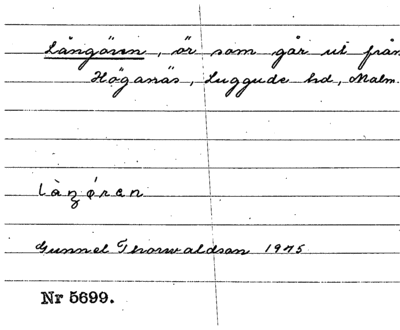 Långören, ör som går ut från
Höganäs, Luggude hd, Malm.
làŋǿren
Gunnel Thorwaldson 1975
Nr 5699.